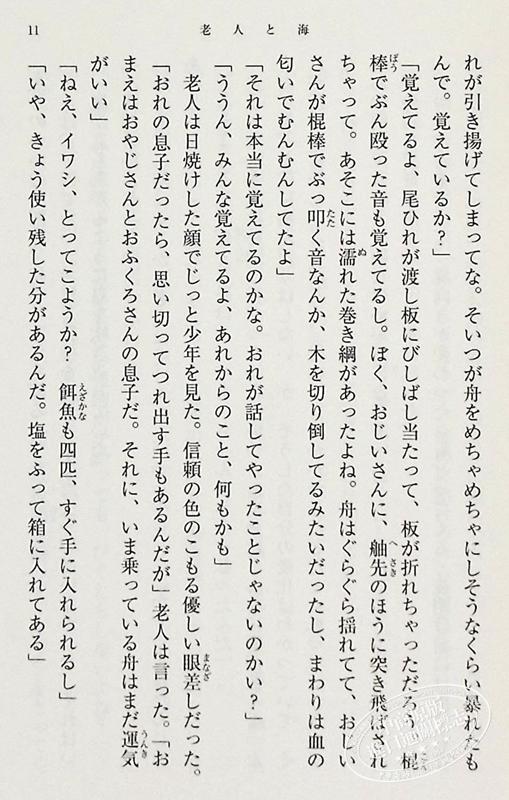 11
老人と海
れが引き揚げてしまってな。そいつが舟をめちゃめちゃにしそうなくらい暴れたも
んで。覚えているか?」
「覚えてるよ、尾ひれが渡し板にびしばし当たって、板が折れちゃっただろう。棍
棒でぶん殴った音も覚えてるし。ぼく、おじいさんに、舳先のほうに突き飛ばされ
ちゃって。あそこには濡れた巻き綱があったよね。舟はぐらぐら揺れてて、おじい
さんが棍棒でぶっ叩く音なんか、木を切り倒してるみたいだったし、まわりは血の
匂いでむんむんしてたよ」
「それは本当に覚えてるのかな。おれが話してやったことじゃないのかい?」
「ううん、みんな覚えてるよ、あれからのこと、何もかも」
老人は日焼けした顔でじっと少年を見た。信頼の色のこもる優しい眼差しだった。
「おれの息子だったら、思い切ってつれ出す手もあるんだが」老人は言った。「お
まえはおやじさんとおふくろさんの息子だ。それに、いま乗っている舟はまだ運気
がいい」
「ねえ、イワシ、とってこようか? 餌魚も四匹、すぐ手に入れられるし」
「いや、きょう使い残した分があるんだ。塩をふって箱に入れてある」